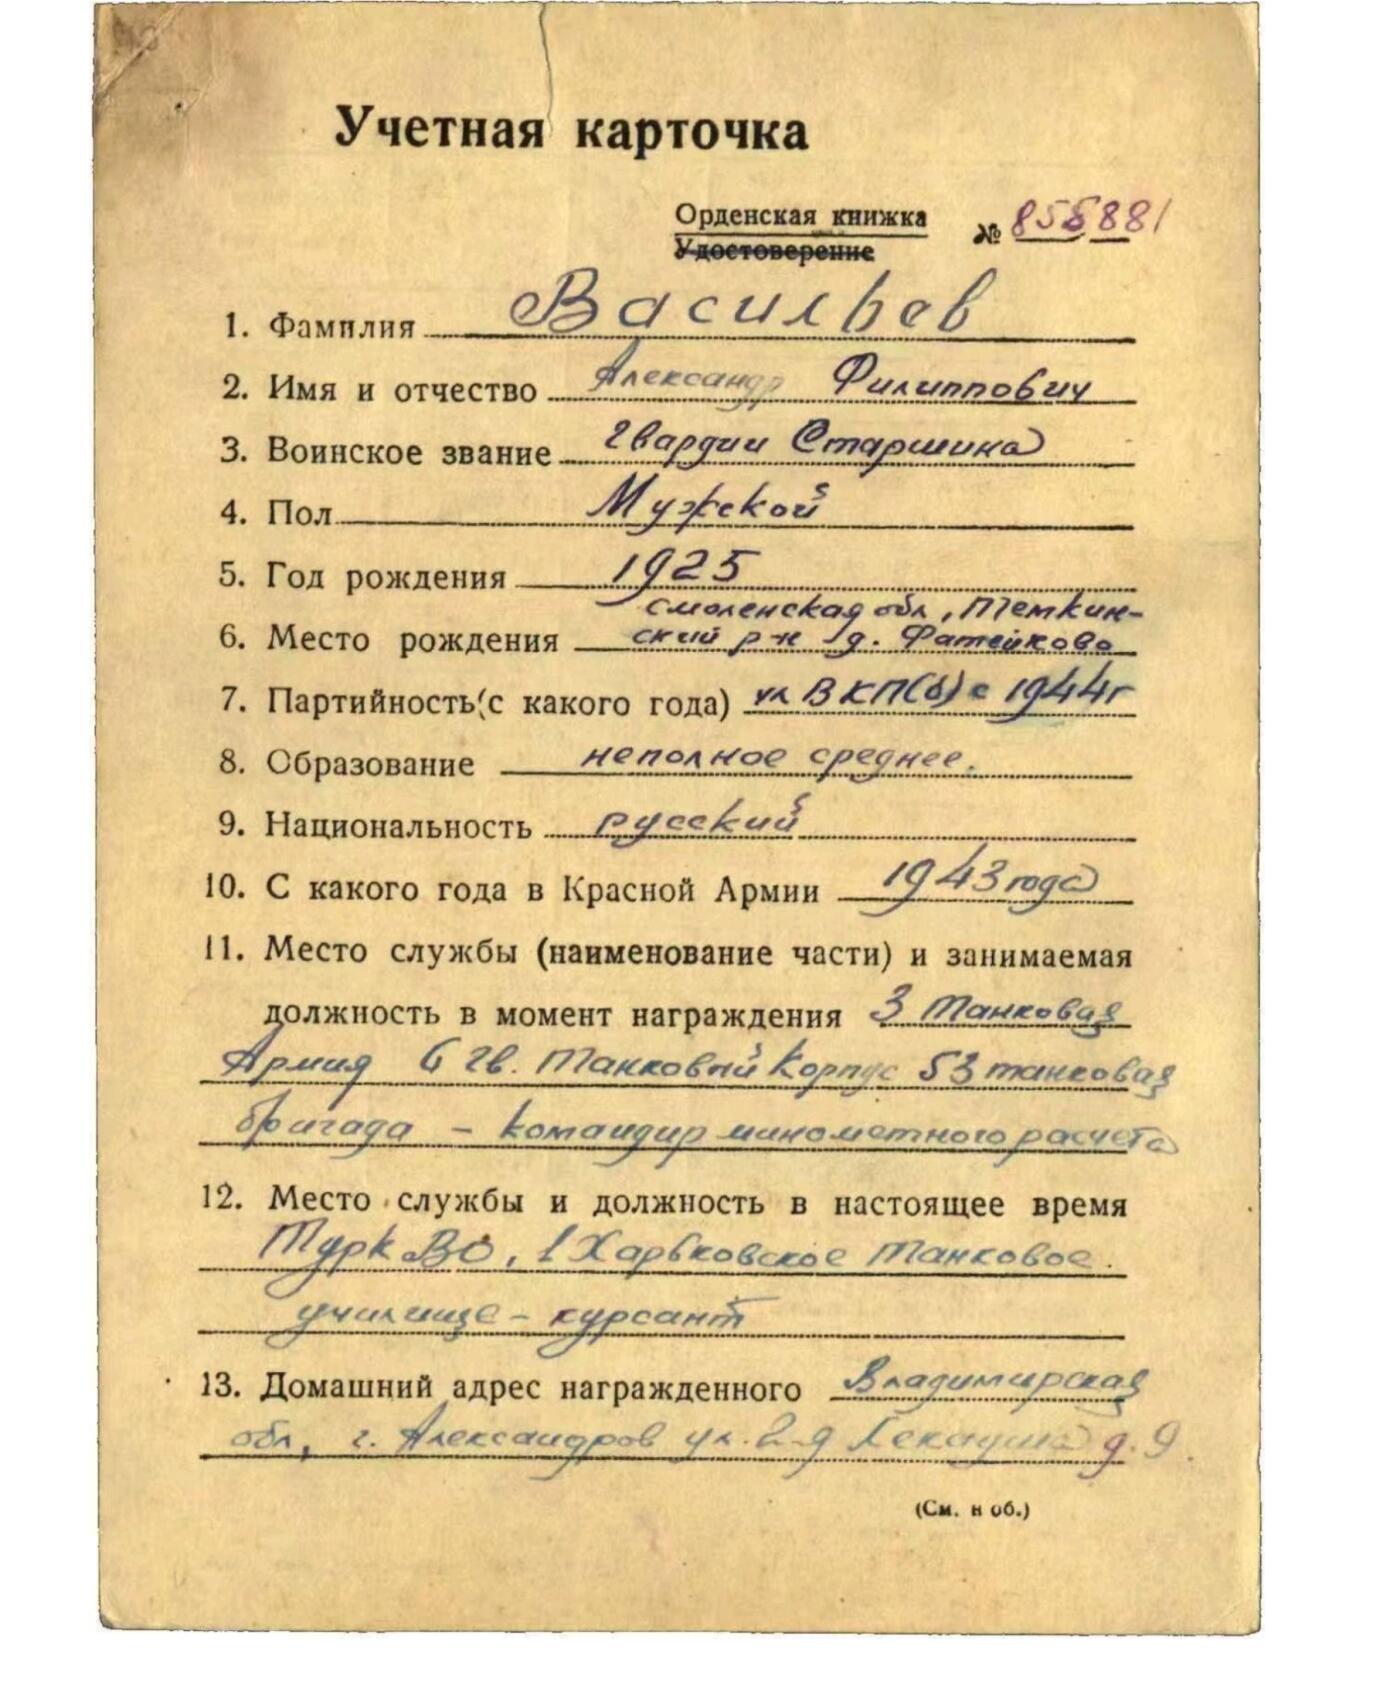 Учетная карточка
Орденская книжка № 855881
Удостоверение
1. Фамилия Васильев
2. Имя и отчество Александр Филиппович
3. Воинское звание гвардии Старшина
4. Пол Мужской
5. Год рождения 1925
смоленская обл, Темкин-
6. Место рождения ский р-н д. Фатейково
7. Партийность (с какого года) чл ВКП(б) с 1944г
8. Образование неполное среднее.
9. Национальность русский
10. С какого года в Красной Армии 1943 года
11. Место службы (наименование части) и занимаемая
должность в момент награждения 3 Танковая
Армия 6 гв. Танковый Корпус 53 танковая
бригада – командир минометного расчета
12. Место службы и должность в настоящее время
Турк ВО, 1 Харьковское Танковое
училище – курсант
13. Домашний адрес награжденного Владимирская
обл, г. Александров ул. 2-я д. 9
(См. н об.)